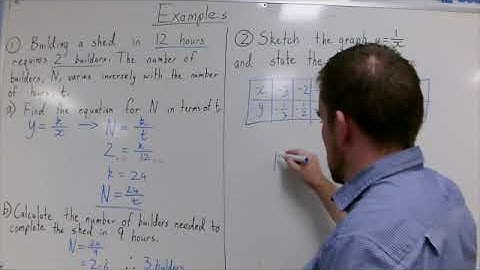 Examples
① Building a shed in 12 hours
requires 2 builders. The number of
builders, N, varies inversely with the number
of hours, t.
a) Find the equation for N in terms of t
y = k/x → N = k/t
2 = k/12
k = 24
N = 24/t
b) Calculate the number of builders needed to
complete the shed in 9 hours.
N = 24/9
= 2.6 ∴ 3 builders
② Sketch the graph y = 1/x
and state the
x -3 -2
y -1/3 -1/2